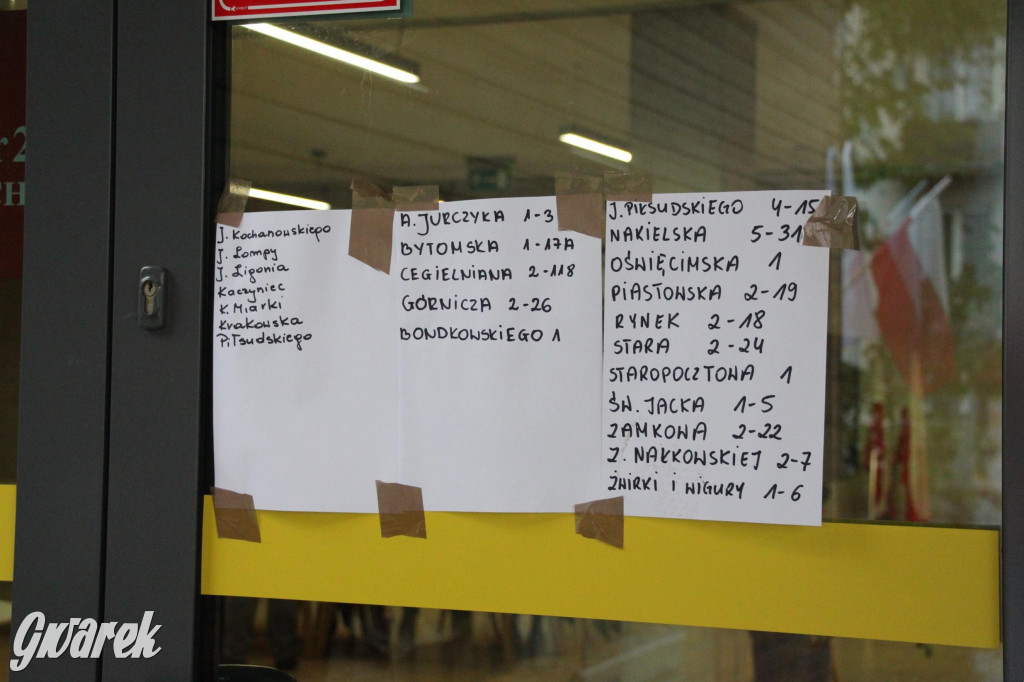 J. Kochanowskiego
J. Lompy
J. Ligonia
Kaczyniec
K. Miarki
Krakowska
Piłsudskiego
A. JURCZYKA 1-3
BYTOMSKA 1-17A
CEGIELNIANA 2-118
GÓRNICZA 2-26
BONDKOWSKIEGO 1
J. PIŁSUDSKIEGO 4-15
NAKIELSKA 5-31
OŚWIĘCIMSKA 1
PIASTOWSKA 2-19
RYNEK 2-18
STARA 2-24
STAROPOCZTOWA 1
ŚW. JACKA 1-5
ZAMKOWA 2-22
Z. NAŁKOWSKIEJ 2-7
ŻWIRKI I WIGURY 1-6
Gwarek